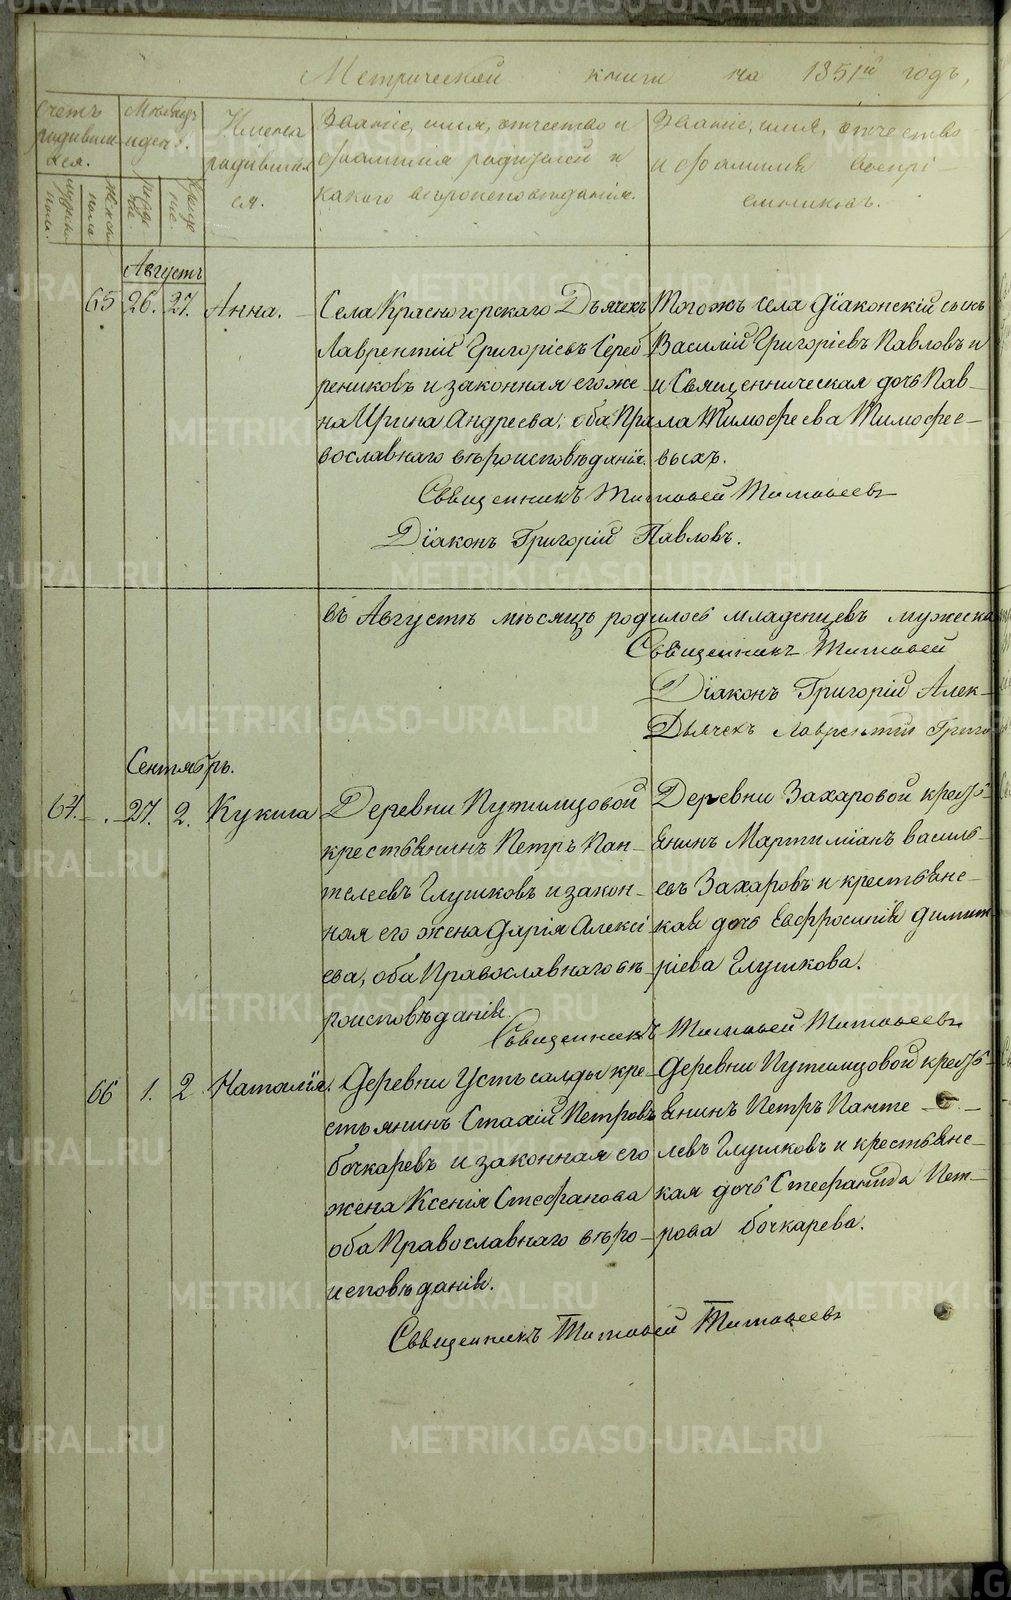 Метрической книги на 1851й годъ,
Счетъ родившихся.
Мѣсяцъ и день.
Имена родившихся.
Званіе, имя, отчество и фамилія родителей и какого вѣроисповѣданія.
Званіе, имя, отчество и фамилія воспріемниковъ.
Августъ
65 26. 27. Анна.
Села Красногорскаго Дьячекъ
Лаврентій Григоріевъ Сереб-
рениковъ и законная его же-
на Ирина Андреева, оба Пра-
вославнаго вѣроисповѣданія.
Тогожъ села Діаконскій сынъ
Василій Григоріевъ Павловъ и
и Священническая дочь Пав-
ла Тимофеева Тимофее-
выхъ.
Священникъ Тимофей Тимофеевъ
Діаконъ Григорій Павловъ.
въ Августѣ мѣсяцѣ родилось младенцевъ мужеска
Священникъ Тимофей
Діаконъ Григорій Алек-
Дьячекъ Лаврентій Григо
Сентябрь.
67. 27. 2. Кукша
Деревни Путимцовой
крестьянинъ Петръ Пан-
телеевъ Глушковъ и закон-
ная его жена Дарія Алексі
ева, оба Православнаго вѣ-
роисповѣданія.
Деревни Захаровой кресть-
янинъ Мартиміанъ Василь-
евъ Захаровъ и крестьянс-
кая дочь Евфросинія Димит-
ріева Глушкова.
Священникъ Тимофей Тимофеевъ
66 1. 2. Наталія.
Деревни Усть салды кре-
стьянинъ Стахій Петровъ
бочкаревъ и законная его
жена Ксенія Стефанова
оба Православнаго вѣро-
исповѣданія.
Деревни Путимцовой кресть-
янинъ Петръ Панте-
леевъ Глушковъ и крестьянс-
кая дочь Стефанида Пет-
рова бочкарева.
Священникъ Тимофей Тимофеевъ
METRIKI.GASO-URAL.RU